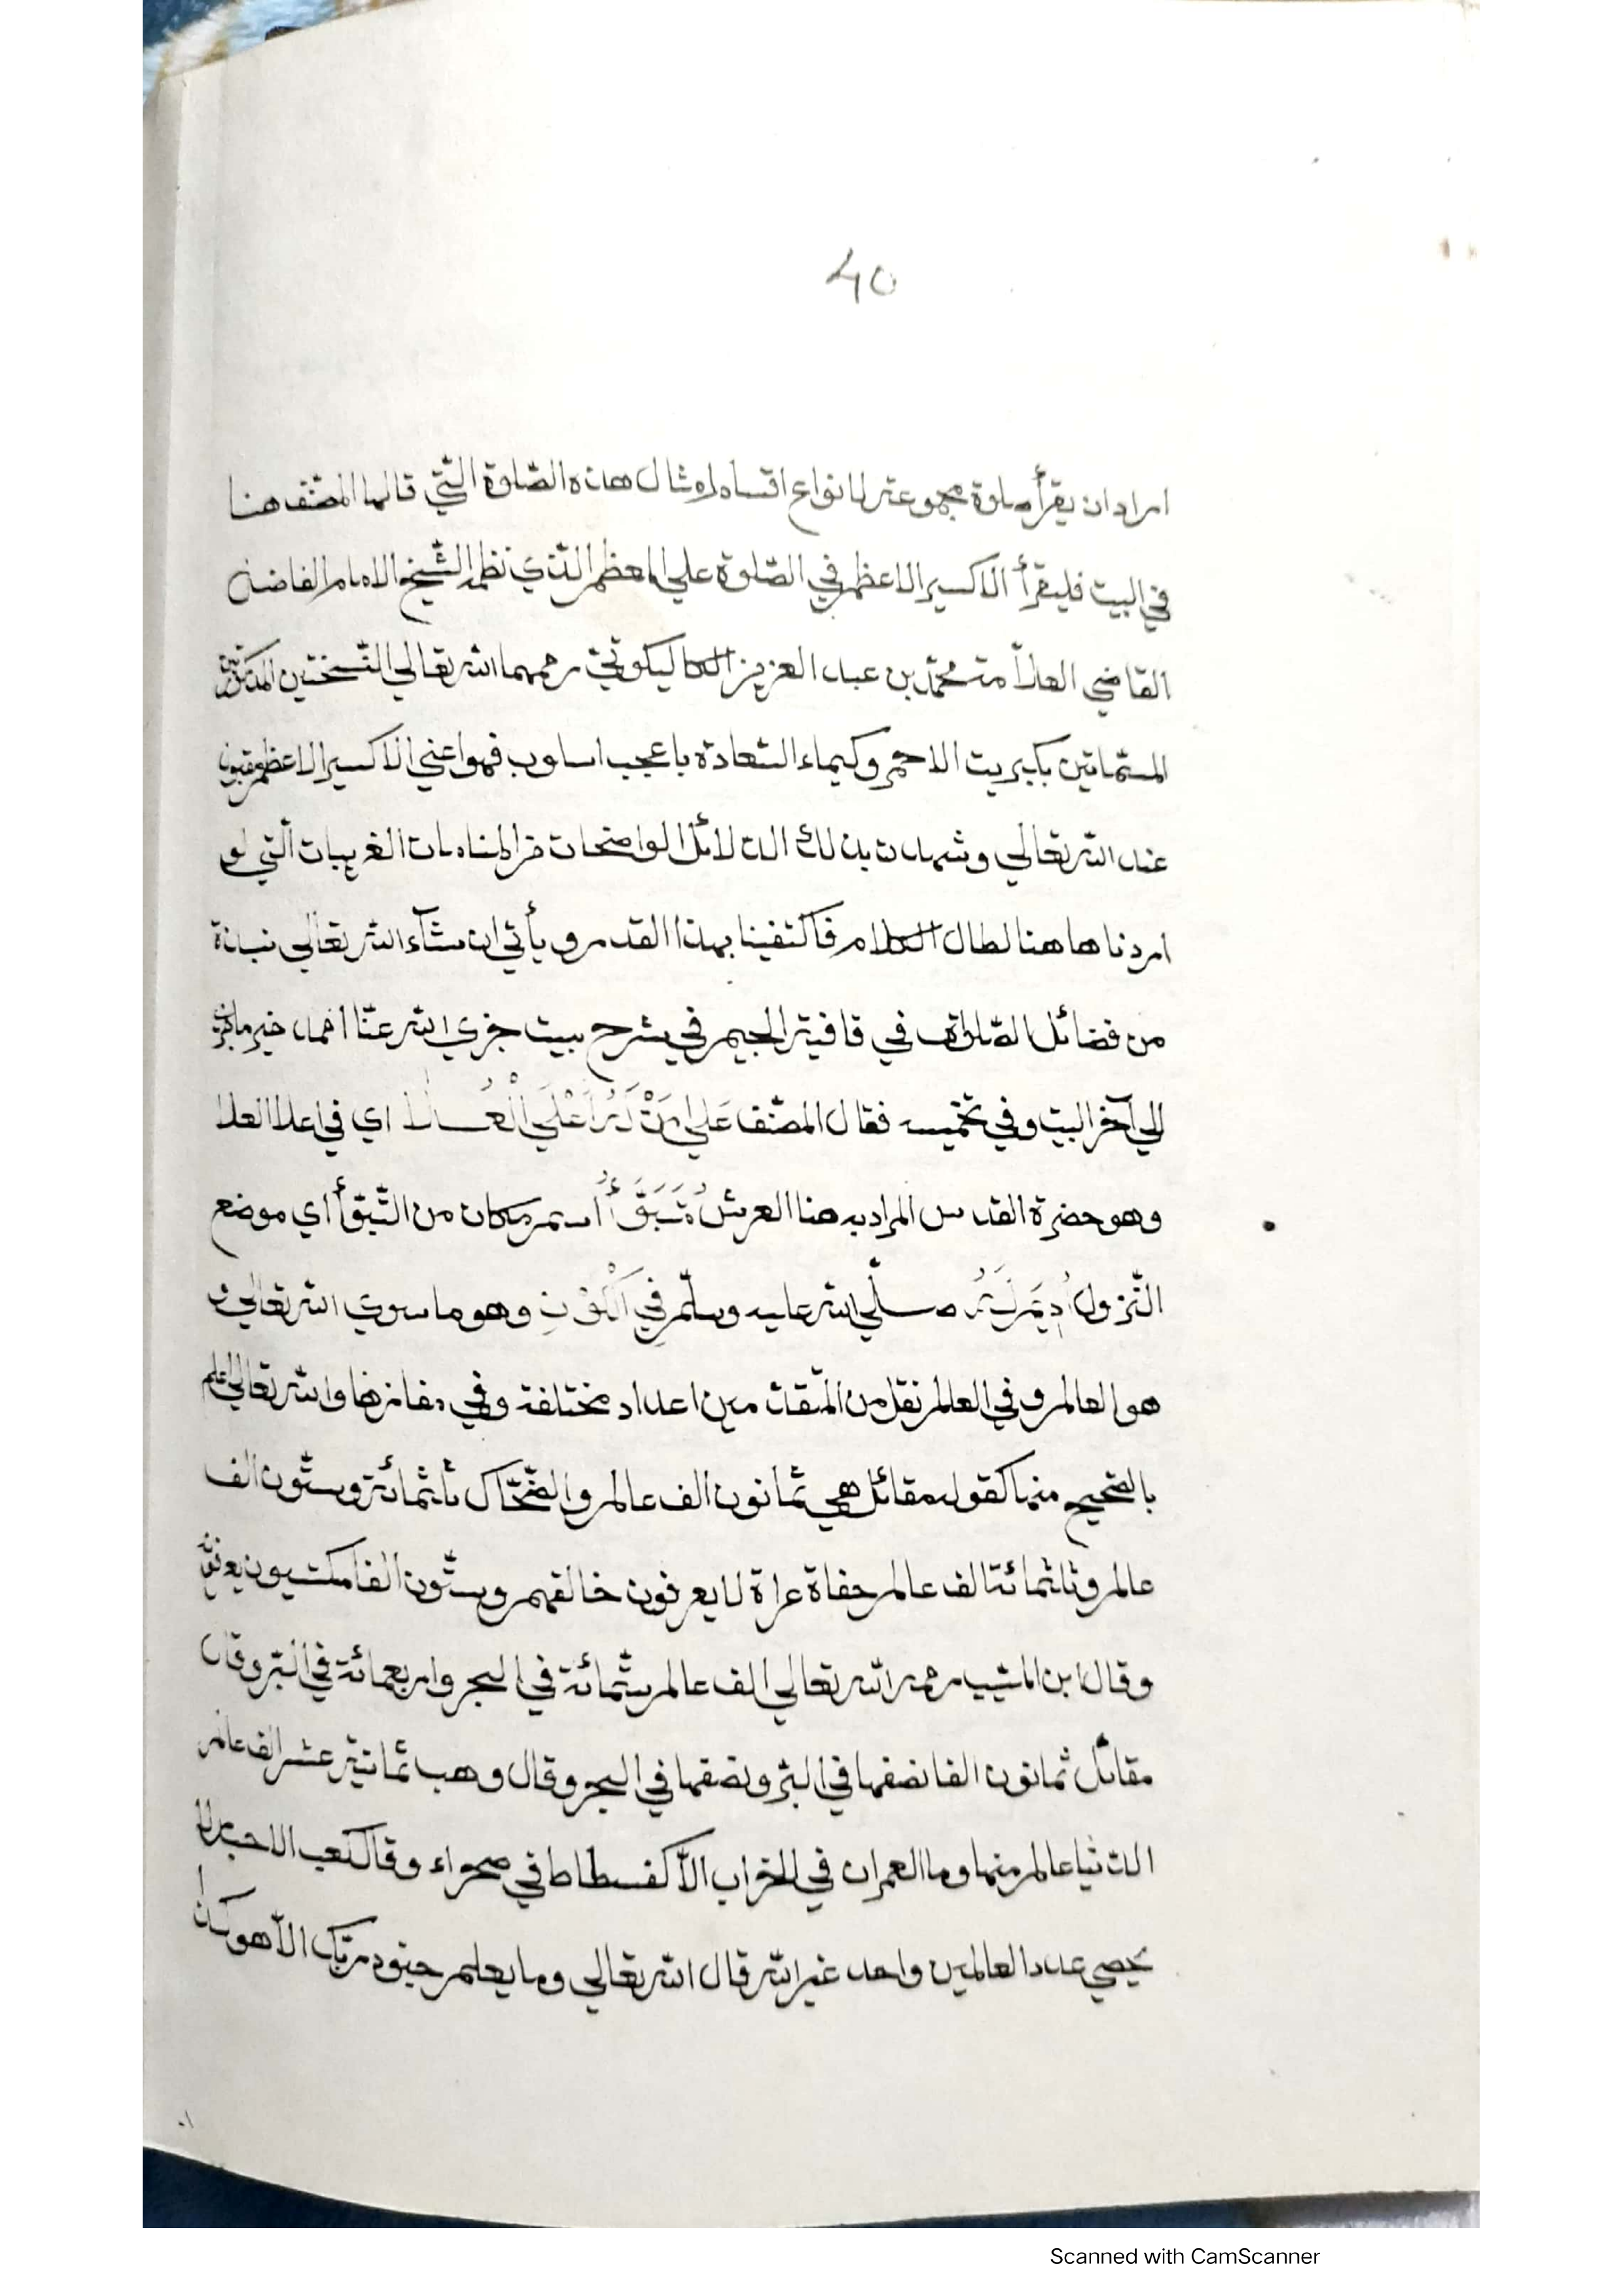 40
اراد ان يقرأ صلوة مجموعة لانواع اقسام امثال هذه الصّلوة الّتي قالها المصنّف هنا
في البيت فليقرأ الاكسير الاعظم في الصّلوة علي المعظم الّذي نظمه الشّيخ الامام الفاضل
القاضي العلّامة محمّد بن عبد العزيز الكاليكوتيّ رحمهما الله تعالي النّسختين المذكورتين
المسمّاتين بكبريت الاحمر وكيماء السّعادة باعجب اسلوب فهو اعني الاكسير الاعظم مقبول
عند الله تعالي وشهدت بذلك الدّلائل الواضحات من المنامات الغريبات الّتي لو
اردناها هنا لطال الكلام فاكتفينا بهذا القدر ويأتي ان شآء الله تعالي نبذة
من فضائل الصّلوة في قافية الجيم في شرح بيت جزي الله عنّا احمد خير ماجزي
الي آخر البيت وفي تخميسه فقال المصنّف عَلي مَنْ لَهُ اَعْلَي الْعُـــلَا اي في اعلا العلا
وهو حضرة القدس المراد به هنا العرش مُتَبَوَّأُ اسم مكان من التّبوّأ اي موضع
النّزول صلّي الله عليه وسلّم فِي الْكَوْنِ وهو ما سوي الله تعالي و
هو العالم وفي العالم نقل من المتقدّمين اعداد مختلفة وفي مقارنها والله تعالي اعلم
بالصّحيح منها كقول مقاتل هي ثمانون الف عالم والضّحّاك ثلثمائة وستّون الف
عالم وثلثمائة الف عالم حفاة عراة لا يعرفون خالقهم وستّون الفا مكتسيون يعرفونه
وقال ابن المسّيب رحمه الله تعالي الف عالم ستّمائة في البحر واربعمائة في البرّ وقال
مقاتل ثمانون الفا نصفها في البرّ ونصفها في البحر وقال وهب ثمانية عشر الف عالم
الدّنيا عالم منها وما العمران في الخراب الّا كفسطاط في صحراء وقال كعب الاحبار لا
يحصي عدد العالمين واحد غير الله قال الله تعالي وما يعلم جنود ربّك الّا هو كان
Scanned with CamScanner